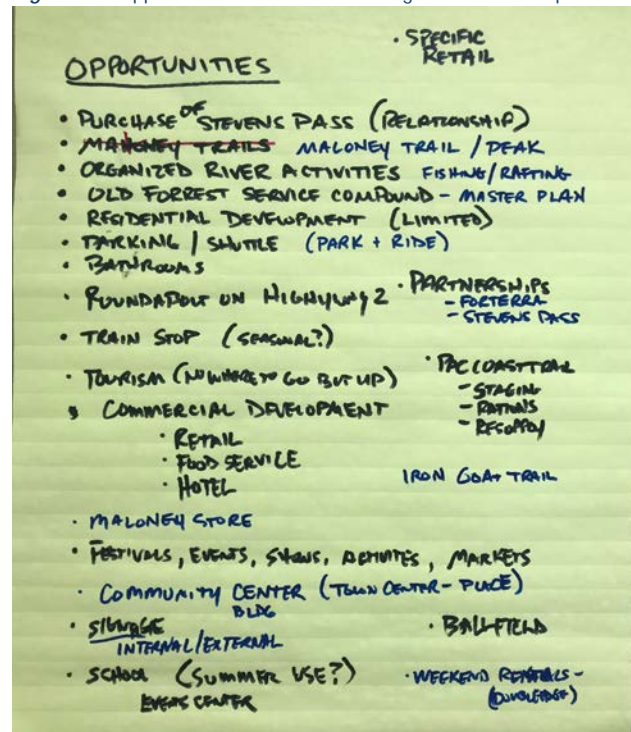 OPPORTUNITIES
· SPECIFIC
RETAIL
· PURCHASE OF STEVENS PASS (RELATIONSHIP)
· MAHONEY TRAILS MALONEY TRAIL / PEAK
· ORGANIZED RIVER ACTIVITIES FISHING/RAFTING
· OLD FORREST SERVICE COMPOUND - MASTER PLAN
· RESIDENTIAL DEVELOPMENT (LIMITED)
· PARKING / SHUTTLE (PARK + RIDE)
· BATHROOMS
· ROUNDABOUT ON HIGHWAY 2
· PARTNERSHIPS
- FORTERRA
- STEVENS PASS
· TRAIN STOP (SEASONAL?)
· TOURISM (NOWHERE TO GO BUT UP)
· PAC COAST TRAIL
- STAGING
- RATIONS
- RESUPPLY
· COMMERCIAL DEVELOPMENT
· RETAIL
· FOOD SERVICE
· HOTEL
IRON GOAT TRAIL
· MALONEY STORE
· FESTIVALS, EVENTS, SHOWS, ACTIVITES, MARKETS
· COMMUNITY CENTER (TOWN CENTER - PLACE)
BLDG
· SIGNAGE
INTERNAL/EXTERNAL
· BALLFIELD
· SCHOOL (SUMMER USE?)
EVENTS CENTER
· WEEKEND RENTALS -